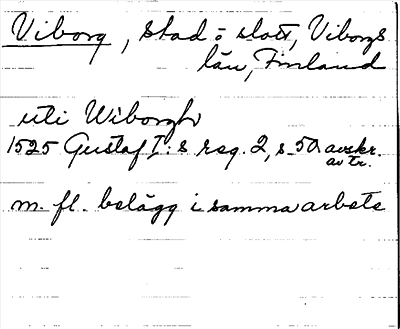 Viborg, stad o slott, Viborgs
län, Finland
uti Wiborgh
1525 Gustaf I:s reg. 2, s 50 avskr.
av tr.
m. fl. belägg i samma arbete